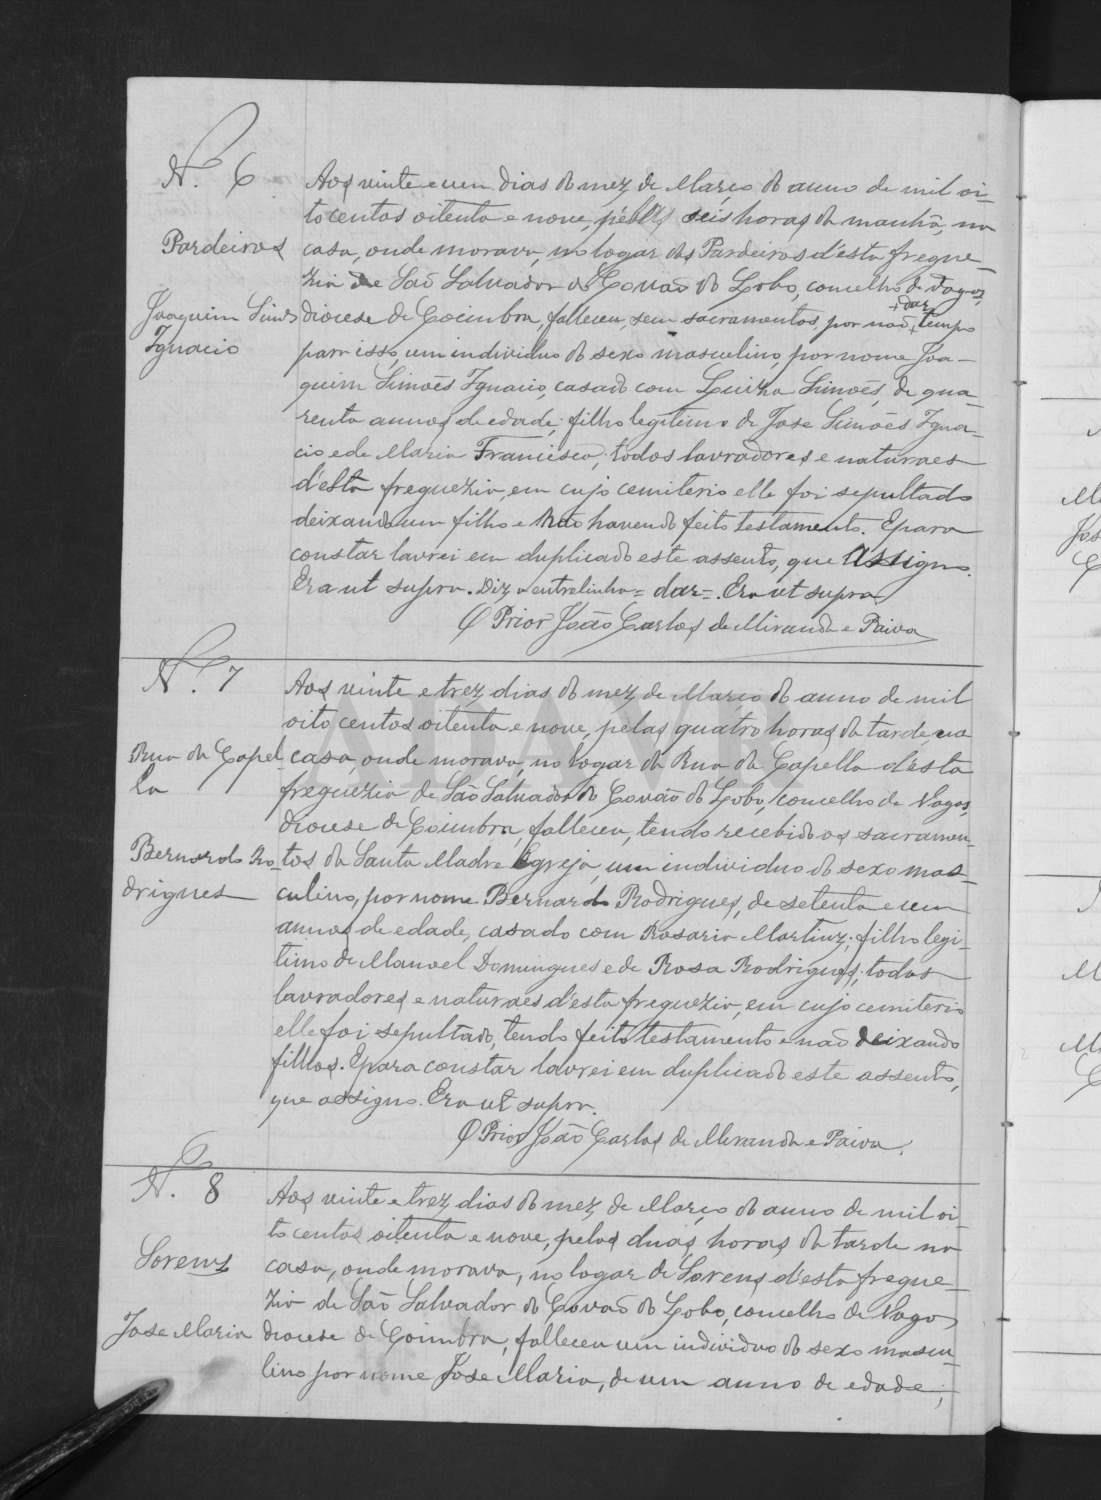 N.º 6
Pardeiros
Joaquim Simões
Ignacio
Aos vinte e um dias do mez de Março do anno de mil oi-
tocentos oitenta e nove, pelas seis horas da manhã, na
casa, onde morava, no logar dos Pardeiros d'esta fregue-
zia de São Salvador do Covão do Lobo, concelho de Vagos,
+ dar
diocese de Coimbra, falleceu, sem sacramentos, por não + tempo
para isso, um individuo do sexo masculino, por nome Joa-
quim Simões Ignacio, casado com Luiza Simões, de qua-
renta annos de edade; filho legitimo de Jose Simões Igna-
cio e de Maria Francisca; todos lavradores e naturaes
d'esta freguezia, em cujo cemiterio elle foi sepultado
deixando um filho e não havendo feito testamento. E para
constar lavrei em duplicado este assento, que assigno.
Era ut supra. Diz a entrelinha = dar =. Era ut supra
O Prior João Carlos de Miranda e Paiva
N.º 7
Rua da Capel-
la
Bernardo Ro-
drigues
Aos vinte e trez dias do mez de Março do anno de mil
oito centos oitenta e nove, pelas quatro horas da tarde, na
casa, onde morava, no logar da Rua da Capella d'esta
freguezia de São Salvador do Covão do Lobo, concelho de Vagos,
diocese de Coimbra, falleceu, tendo recebido os sacramen-
tos da Santa Madre Egreja, um individuo do sexo mas-
culino, por nome Bernardo Rodrigues, de setenta e um
annos de edade, casado com Rosaria Martins; filho legi-
timo de Manoel Domingues e de Rosa Rodrigues; todos
lavradores e naturaes d'esta freguezia, em cujo cemiterio
elle foi sepultado, tendo feito testamento e não deixando
filhos. E para constar lavrei em duplicado este assento,
que assigno. Era ut supra.
O Prior João Carlos de Miranda e Paiva.
N.º 8
Jose Maria
Aos vinte e trez dias do mez de Março do anno de mil oi-
tocentos oitenta e nove, pelas duas horas da tarde na
casa, onde morava, no logar de d'esta fregue-
zia de São Salvador do Covão do Lobo, concelho de Vagos
diocese de Coimbra, falleceu um individuo do sexo mascu-
lino por nome Jose Maria, de um anno de edade;
ADAVR